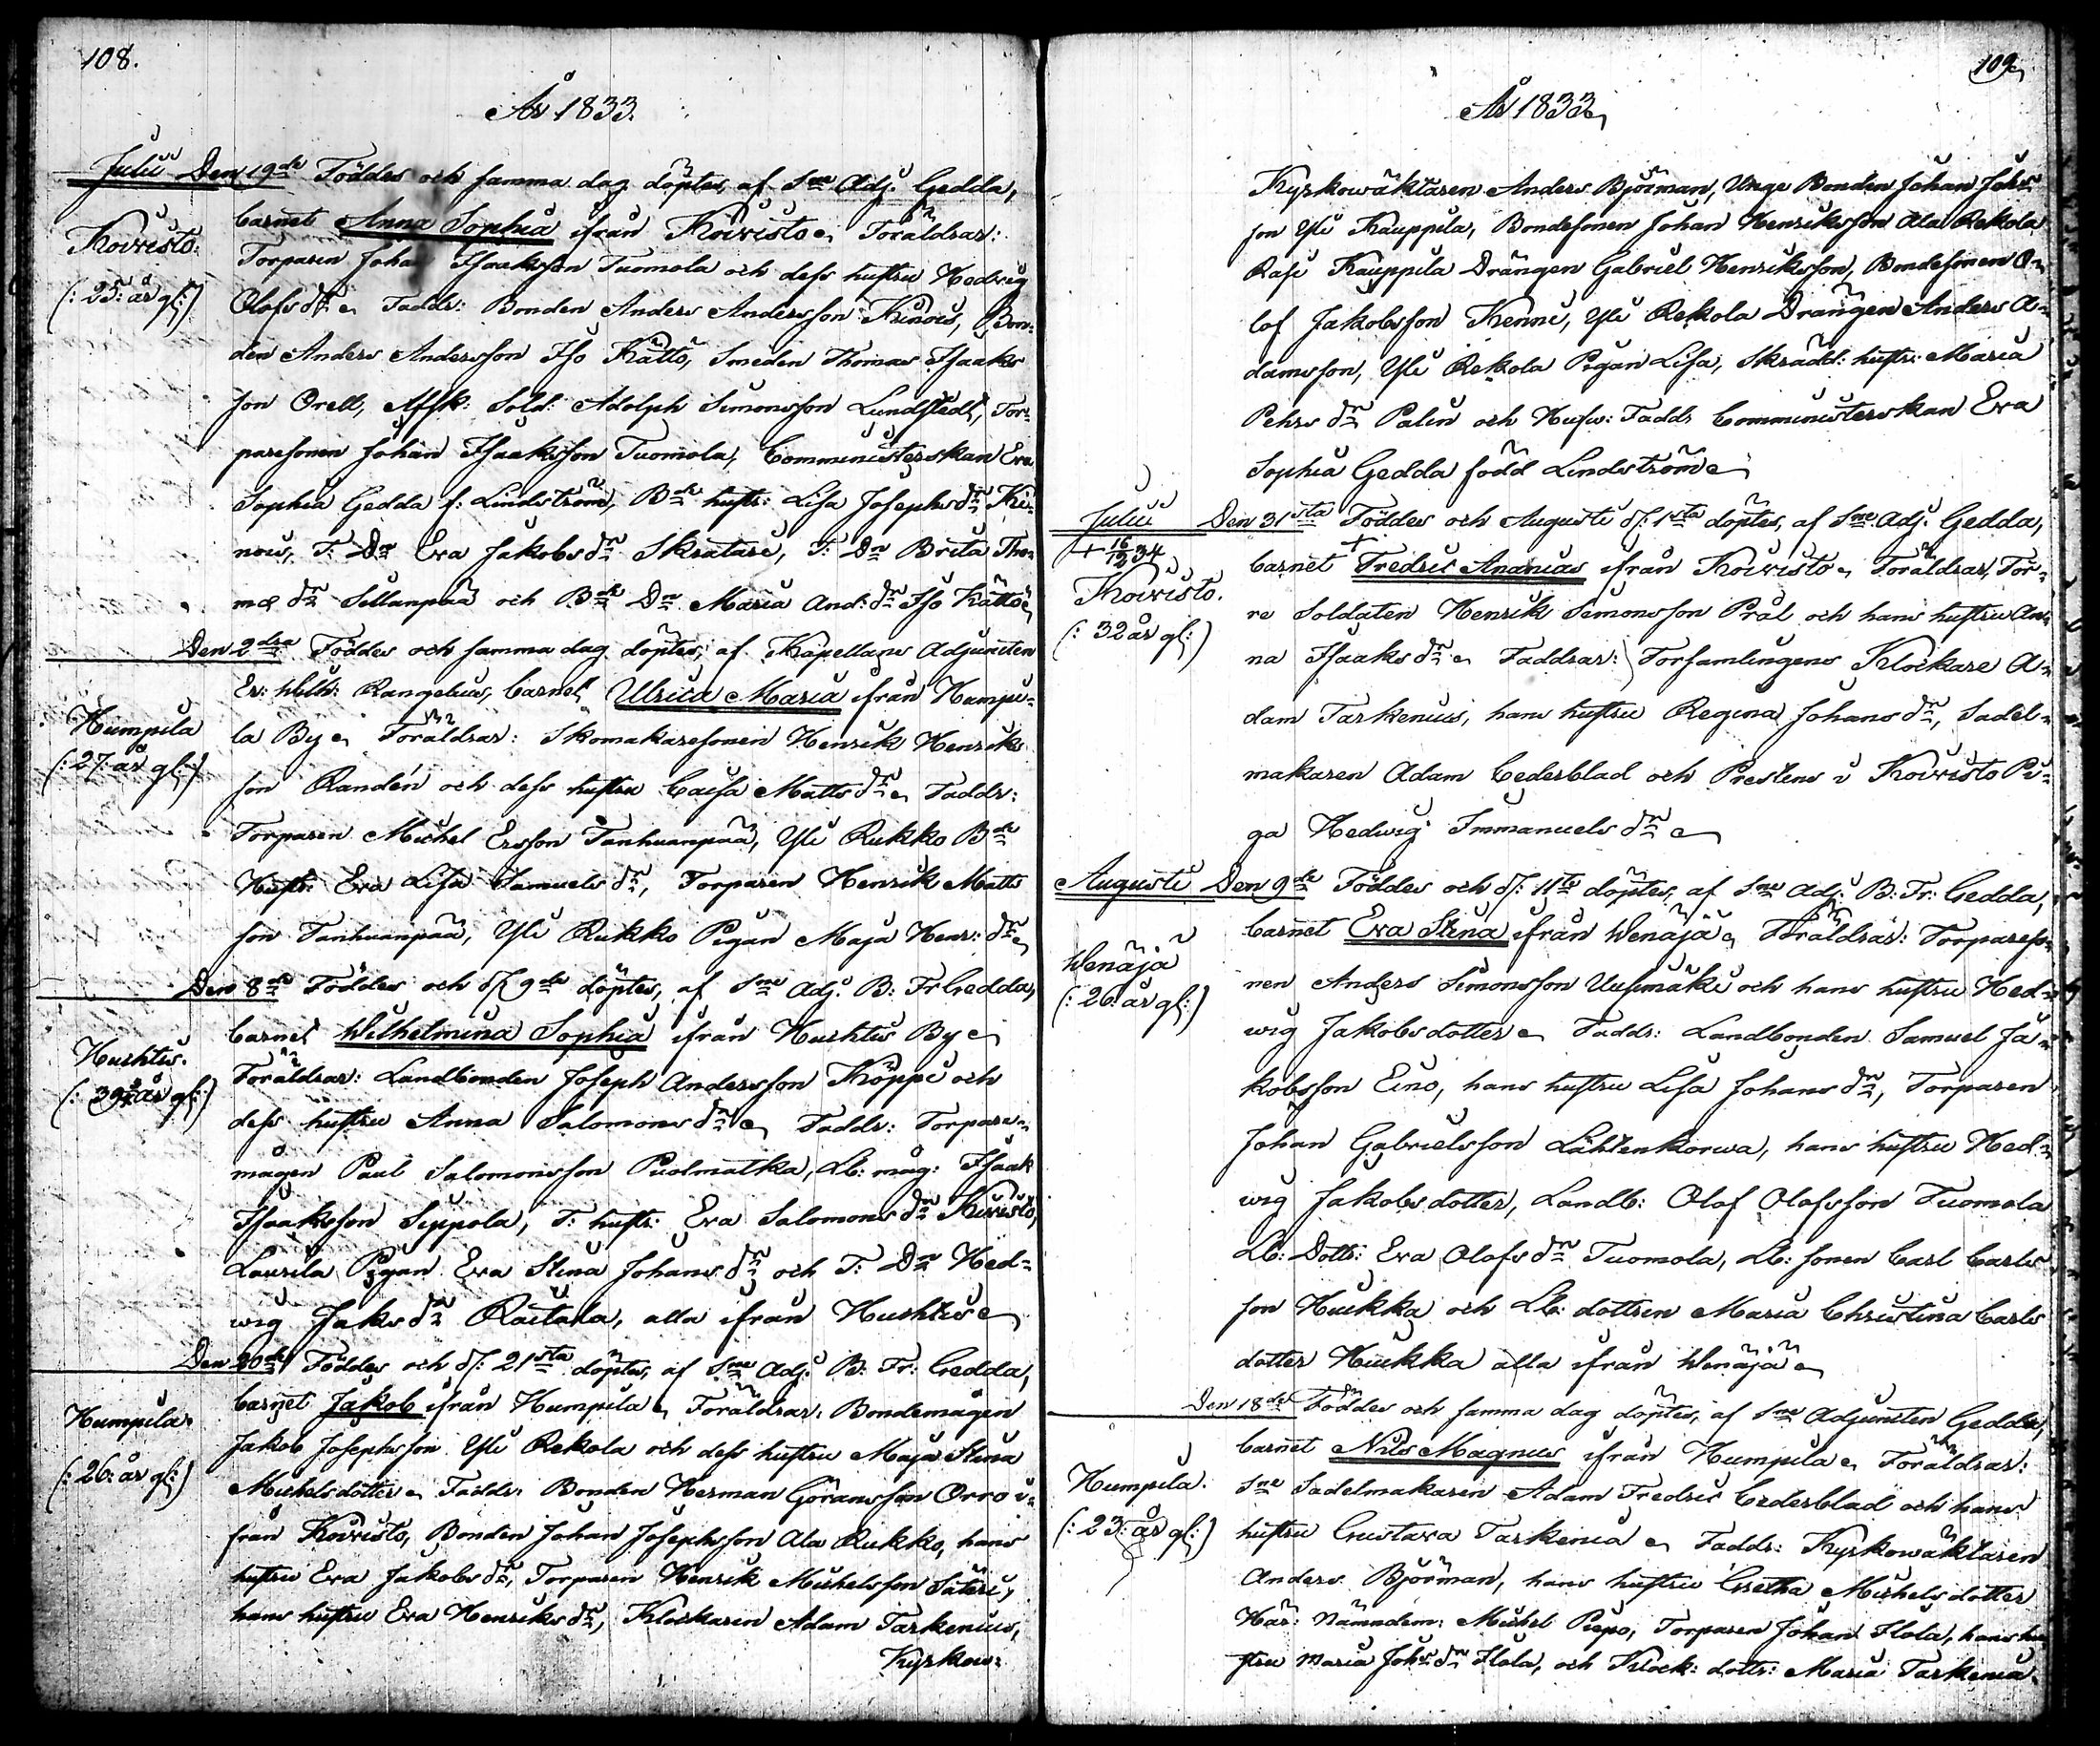 108.
År 1833.
Julii Den 19de Föddes och samma dag döptes, af Sne Adj. Gedda,
barnet Anna Sophia ifrån Koivisto. Föräldrar:
Koivisto. Torparen Johan Isaaksson Tuomola och dess hustru Hedvig
(: 25: år gl:) Olofsdr. Faddr: Bonden Anders Andersson Kinois, Bon-
den Anders Andersson Iso Kättö, Smeden Thomas Isaaks
son Orell, Afsk: Sold: Adolph Simonsson Lundstedt, Tor-
paresonen Johan Isaaksson Tuomola, Comministerskan Eva
Sophia Gedda f: Lindström, Bde hustr: Lisa Josephsdr Ki-
nois, T: Dr Eva Jakobsdr Skrätari, T: Dr Brita Tho-
mæ dr Sellanpää och Bde Dr Maria And: dr Iso Kättö
Den 2dra Föddes och samma dag döptes, af Kapellans Adjuncten
Er: Wilh: Rangelius, barnet Ulrica Maria ifrån Humpi-
Humpila la By. Föräldrar: Skomakaresonen Henrik Henriks
(: 27: år gl:) son Randén och dess hustru Caisa Mattsdr. Faddr:
Torparen Michel Ersson Tanhuanpää, Yli Rukko Bde
Hustr: Eva Lisa Samuelsdr, Torparen Henrik Matts
son Tanhuanpää, Yli Rukko Pigan Maja Henr: dr
Den 8de Föddes och d. 9de döptes, af Sne Adj. B: Fr Gedda,
barnet Wilhelmina Sophia ifrån Huhtis By
Huhtis. Föräldrar: Landbonden Joseph Andersson Köppi och
(: 39 år gl:) dess hustru Anna Salomonsdr. Faddr: Torpare-
mågen Paul Salomonsson Puolmatka, Lb: måg: Isaak
Isaaksson Seppola, T: hustr: Eva Salomonsdr Kivistö,
Laurila Pigan Eva Stina Johansdr och T: Dr Hed-
wig Jaksdr Raitala, alla ifrån Huhtis
Den 20de Föddes och d: 21sta döptes, af Sne Adj. B: Fr: Gedda,
Humpila. barnet Jakob ifrån Humpila. Föräldrar: Bondemågen
Jakob Josephsson Yli Rekola och dess hustru Maja Stina
(: 26: år gl:) Michelsdotter. Faddr: Bonden Herman Göransson Orro i-
från Koivisto, Bonden Johan Josephsson Ala Rukko, hans
hustru Eva Jakobsdr, Torparen Henrik Michelsson Säteri,
hans hustru Eva Henriksdr, Klockaren Adam Tarkenius,
Kyrkow-
109.
År 1833.
Kyrkowäktaren Anders Björman, Unge Bonden Johan Johs-
son Yli Kauppila, Bondesonen Johan Henriksson Ala Rekola
Rasi Kauppila Drängen Gabriel Henriksson, Bondesonen O-
lof Jakobsson Kenni, Yli Rekola Drängen Anders A-
damsson, Yli Rekola Pigan Lisa, Skrädd: hustr: Maria
Pehrs dr Palin och Husw: Faddr Comministerskan Eva
Sophia Gedda född Lindström
Julii Den 31sta Föddes och Augusti d: 1sta döptes, af Sne Adj. Gedda,
+ 16/12 34 barnet + Fredric Ananias ifrån Koivisto. Föräldrar, Tor-
Koivisto. re Soldaten Henrik Simonsson Prål och hans hustru An-
(: 32 år gl:) na Isaaksdr. Faddrar: Församlingens Klockare A-
dam Tarkenius, hans hustru Regina Johansdr, Sadel-
makaren Adam Cederblad och Prestens i Koivisto Pi-
ga Hedwig Immanuels dr
Augusti Den 9de Föddes och d: 11te döptes, af Sne Adj. B: Fr: Gedda,
barnet Eva Stina ifrån Wenäjä. Föräldrar: Torpareso-
Wenäjä nen Anders Simonsson Uusimäki och hans hustru Hed-
(: 26: år gl:) wig Jakobsdotter. Faddr: Landbonden Samuel Ja-
kobsson Eino, hans hustru Lisa Johansdr, Torparen
Johan Gabrielsson Lähtenkorwa, hans hustru Hed-
wig Jakobsdotter, Landb: Olof Olofsson Tuomola
Lb: Dottr: Eva Olofsdr Tuomola, Lb: sonen Carl Carls
son Hukka och Lb: dottren Maria Christina Carls
dotter Hukka alla ifrån Wenäjä
Den 18de Föddes och samma dag döptes, af Sne Adjuncten Gedda,
barnet Nils Magnus ifrån Humpila. Föräldrar:
Humpila. Sne Sadelmakaren Adam Fredric Cederblad och hans
(: 23: år gl:) hustru Gustava Tarkenia. Faddr: Kyrkowäktaren
Anders Björman, hans hustru Gretha Michelsdotter
Här: Nämndem: Michel Piepo, Torparen Johan Hola, hans hu-
stru Maria Johsdr Hola, och Klock: dottr: Maria Tarkenia.